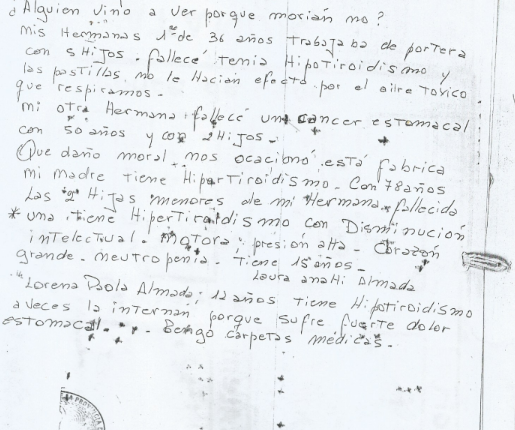 ¿Alguien vino a ver porque morián no?
Mis Hermanas 1ª de 36 años Trabajaba de portera
con 5 Hijos. fallecé tenia Hipotiroidismo y
las pastillas no le Hacian efecto por el aire toxico
que respiramos.
mi otra Hermana fallecé un cancer estomacal
con 50 años y con 2 Hijos.
Que daño moral nos ocacionó está fabrica
mi madre tiene Hipertiroídismo. Con 78 años
Las 2 Hijas menores de mi Hermana fallecida
una tiene Hipertiroidismo con Disminución
intelectual. Motora, presión alta - Corazón
grande. neutropenia. Tiene 15 años.
Laura anaHi Almada
Lorena Paola Almada; 12 años Tiene Hipotiroidismo
a veces la internan porque sufre fuerte dolor
estomacal. Tengo carpetas médicas.
LA PROVINCIA